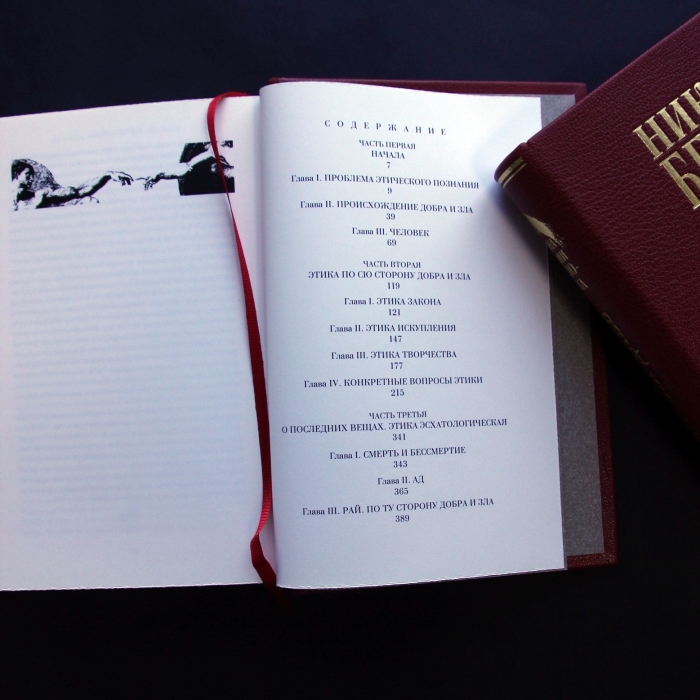 СОДЕРЖАНИЕ
ЧАСТЬ ПЕРВАЯ
НАЧАЛА
7
Глава I. ПРОБЛЕМА ЭТИЧЕСКОГО ПОЗНАНИЯ
9
Глава II. ПРОИСХОЖДЕНИЕ ДОБРА И ЗЛА
39
Глава III. ЧЕЛОВЕК
69
ЧАСТЬ ВТОРАЯ
ЭТИКА ПО СЮ СТОРОНУ ДОБРА И ЗЛА
119
Глава I. ЭТИКА ЗАКОНА
121
Глава II. ЭТИКА ИСКУПЛЕНИЯ
147
Глава III. ЭТИКА ТВОРЧЕСТВА
177
Глава IV. КОНКРЕТНЫЕ ВОПРОСЫ ЭТИКИ
215
ЧАСТЬ ТРЕТЬЯ
О ПОСЛЕДНИХ ВЕЩАХ. ЭТИКА ЭСХАТОЛОГИЧЕСКАЯ
341
Глава I. СМЕРТЬ И БЕССМЕРТИЕ
343
Глава II. АД
365
Глава III. РАЙ. ПО ТУ СТОРОНУ ДОБРА И ЗЛА
389